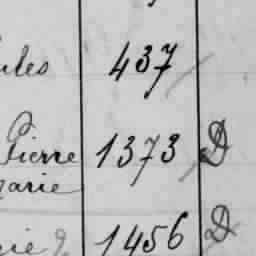 ules 437
Pierre 1373 D
marie
1456 D